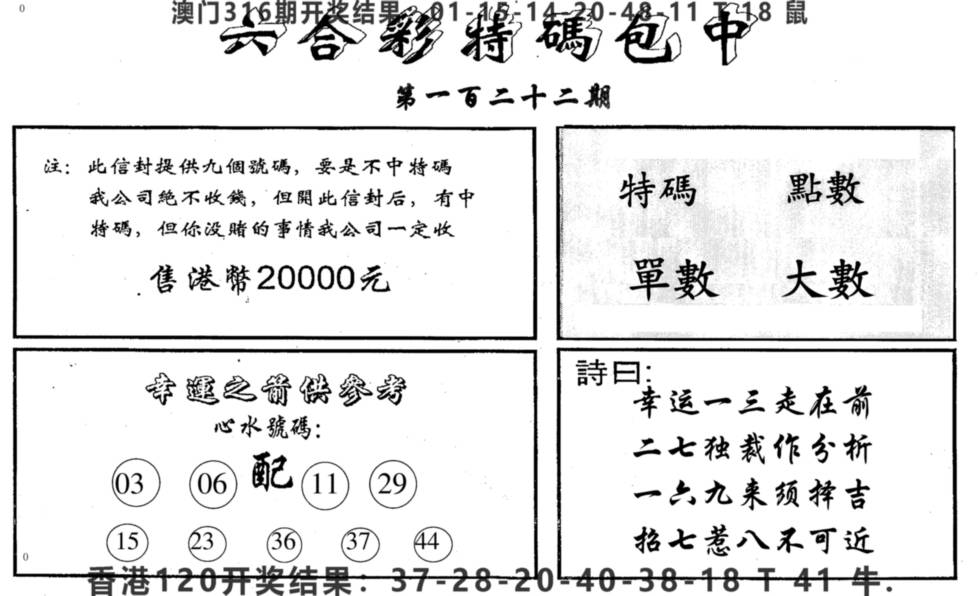 澳门316期开奖结果：01-15-14-20-48-11 T 18 鼠
六合彩特碼包中
第一百二十二期
注：此信封提供九個號碼，要是不中特碼
我公司絕不收錢，但開此信封后，有中
特碼，但你没賭的事情我公司一定收
售港幣20000元
特碼 點數
單數 大數
幸運之前供參考
心水號碼：
03 06 配 11 29
15 23 36 37 44
詩曰：
幸运一三走在前
二七独裁作分析
一六九来须择吉
招七惹八不可近
香港120开奖结果：37-28-20-40-38-18 T 41 牛.